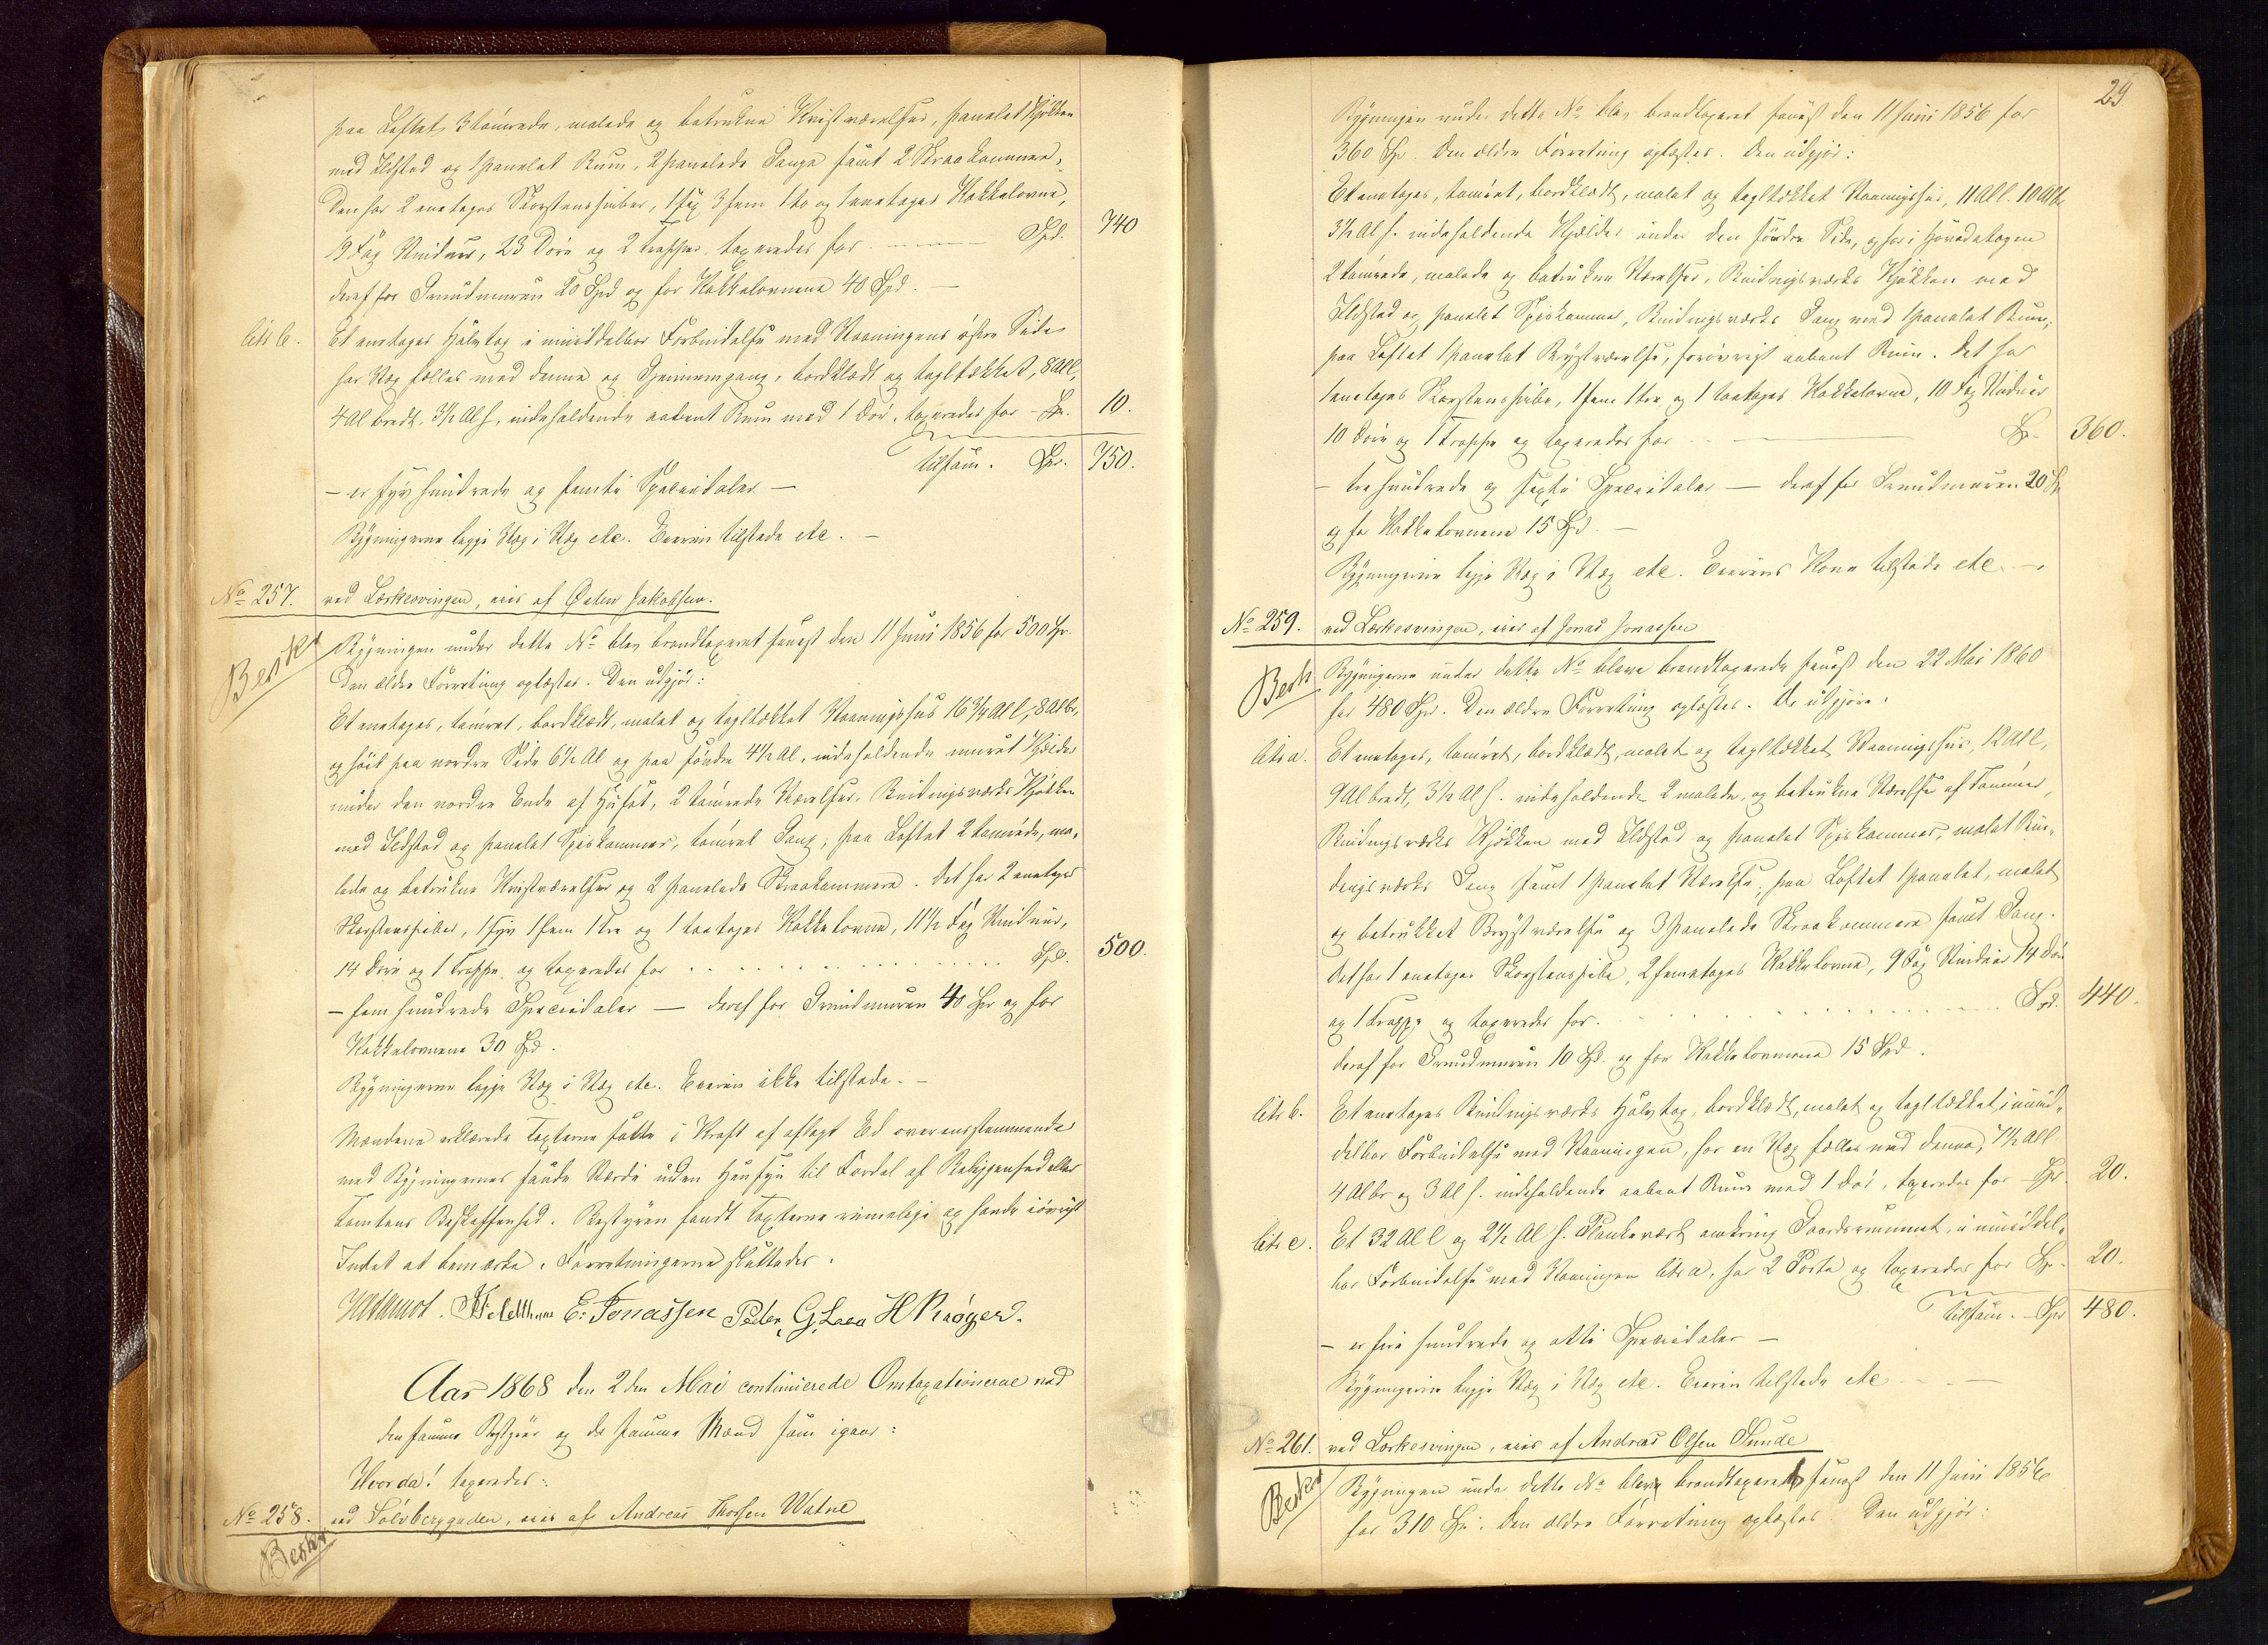 paa Loftet 3 tømrede, malede og betrukne Kvistværelser, panelet Kjøkken
med Ildsted og 1 panelet Rum, 2 panelede Gange samt 2 Skraakammere,
den har 2 enetages Skorstenspiber, 1 sex 3 fem 1 to og 1 enetages Kakkelovne,
19 Fag Vinduer, 23 Døre og 2 Trapper, taxeredes for Spd. 740
deraf for Grundmuren 20 Spd og for Kakkelovnene 40 Spd. —
Litr b. Et enetages Halvtag i umiddelbar Forbindelse med Vaaningens østre Side
har Væg fælles med denne og Gjennemgang, bordklædt og tagltækket, 8 Al l,
4 Al bredt, 3½ Al h, indeholdende aabent Rum med 1 Dør, taxeredes for - Sp. 10.
tilsam. Spd. 750.
— er syv hundrede og femti Speciedaler —
Bygningerne ligge Væg i Væg etc. Eieren tilstede etc. —
No 257. ved Lærkesvingen, eies af Østen Jakobsen.
Beskr Bygningen under dette No blev brandtaxeret senest den 11 Juni 1856 for 500 Sp.
Den ældre Forretning oplæstes. Den udgjør:
Et enetages, tømret, bordklædt, malet og tagltækket Vaaningshus 16¾ Al l, 8 Al br,
og høit paa nordre Side 6½ Al og paa søndre 4½ Al, indeholdende muret Kjælder
under den nordre Ende af Huset, 2 tømrede Værelser, Bindingsværks Kjøkken
med Ildsted og panelet Spiskammer, tømret Gang; paa Loftet 2 tømrede, ma-
lede og betrukne Kvistværelser og 2 panelede Skraakammere. Det har 2 enetages
Skorstenspiber, 1 fyr 1 fem 1 tre og 1 toetages Kakkelovne, 11½ Fag Vinduer,
14 Døre og 1 Trappe og taxeredes for Spd. 500.
— fem hundrede Speciedaler — deraf for Grundmuren 40 Sp og for
Kakkelovnene 30 Spd.
Bygningerne ligge Væg i Væg etc. Eieren ikke tilstede. —
Mændene erklærede Taxterne satte i Kraft af aflagt Ed overensstemmende
med Bygningernes sande Værdi uden Hensyn til Fordel af Beliggenhed eller
Tomtens Beskaffenhed. Bestyren fandt Taxterne rimelige og havde iøvrigt
Intet at bemærke. Forretningerne sluttedes.
E. Jonassen Peder G. Laea H Krøger.
Aar 1868 den 2den Mai continuerede Omtaxationerne ved
den samme Bestyrer og de samme Mænd som igaar:
Hvorda! taxeredes:
No 258. ved Sølvberggaden, eies af Andreas Thorsen Watne
Beskr
29
Bygningen under dette No blev brandtaxeret senest den 11 Juni 1856 for
360 Sp. Den ældre Forretning oplæstes. Den udgjør:
Et enetages, tømret, bordklædt, malet og tagltækket Vaaningshus, 11 Al l. 10 Al br
3½ Al h. indeholdende Kjælder under den søndre Side, og har i Hovedetagen
2 tømrede, malede og betrukne Værelser, Bindingsværks Kjøkken med
Ildsted og panelet Spiskammer, Bindingsværks Gang med 1 panelet Rum,
paa Loftet 1 panelet Brystværelse, forøvrigt aabent Rum. Det har
1 enetages Skorstenspibe, 1 fem 1 tre og 1 toetages Kakkelovne, 10 Fag Vinduer
10 Døre og 1 Trappe og taxeredes for Sp. 360.
— tre hundrede og sexti Speciedaler — deraf for Grundmuren 20 Sp
og for Kakkelovnene 15 Spd. —
Bygningerne ligge Væg i Væg etc. Eierens Kone tilstede etc —
No 259. ved Lærkesvingen, eies af Jonas Jonassen
Besk Bygningerne under dette No bleve brandtaxerede senest den 22 Mai 1860
for 480 Spd. Den ældre Forretning oplæstes. De udgjøre:
Litr a. Et enetages, tømret, bordklædt, malet og tagltækket Vaaningshus, 12 Al l,
9 Al bredt, 3½ Al h. indeholdende 2 malede, og betrukne Værelser af Tømmer,
Bindingsværks Kjøkken med Ildsted og panelet Spiskammer, malet Bin-
dingsværks Gang samt 1 panelet Værelse, paa Loftet 1 panelet, malet
og betrukket Brystværelse og 3 panelede Skraakammere samt Gang.
Det har 1 enetages Skorstenspibe, 2 femetages Kakkelovne, 9 Fag Vinduer 14 Døre
og 1 Trappe og taxeredes for. Spd. 440.
deraf for Grundmuren 10 Spd. og for Kakkelovnene 15 Spd.
Litr b. Et enetages Bindingsværks Halvtag, bordklædt, malet og tagltækket, i umid-
delbar Forbindelse med Vaaningen, har en Væg fælles med denne, 7½ Al l
4 Al br og 3 Al h. indeholdende aabent Rum med 1 Dør, taxeredes for - Sp. 20.
Litr c. Et 32 Al l og 2½ Al h. Plankeværk omkring Gaardsrummet, i umiddel-
bar Forbindelse med Vaaningen Litr a, har 2 Porte og taxeredes for Sp. 20.
tilsam. - Spd 480.
— er fire hundrede og otti Speciedaler —
Bygningerne ligge Væg i Væg etc. Eieren tilstede etc —
No 261. ved Lærkesvingen, eies af Andreas Olsen Sunde
Beskr Bygningen under dette No blev brandtaxeret senest den 11 Juni 1856
for 310 Sp. Den ældre Forretning oplæstes. Den udgjør: